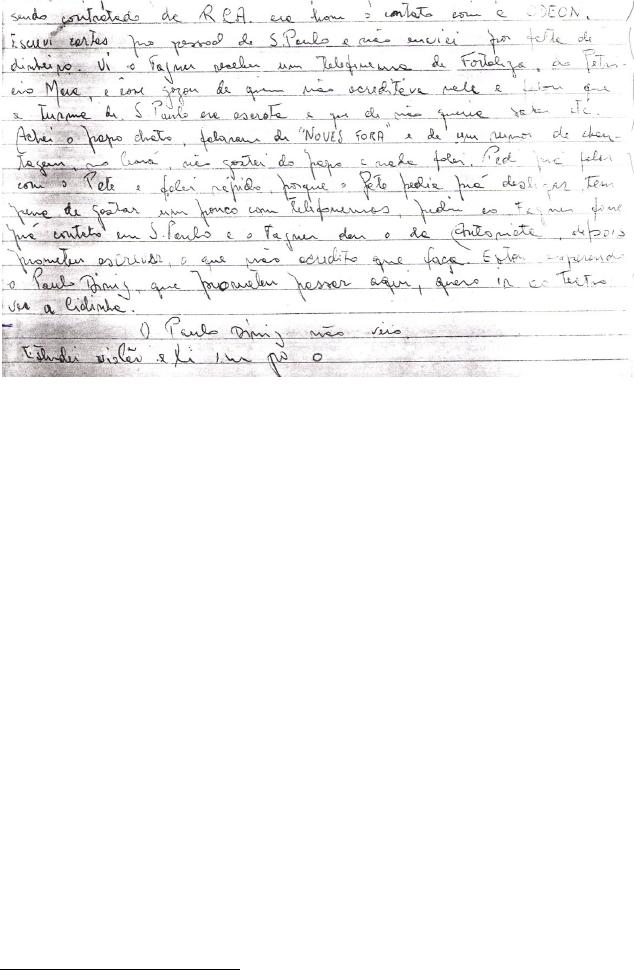 sendo contratado da RCA. era bom o contato com a ODEON.
Escrevi cartas pro pessoal de S.Paulo e não enviei por falta de
dinheiro. Vi o Fagner receber um telefonema de Fortaleza, do Petru-
cio Maia, e esse gozou de quem não acreditava nele e falou que
a turma de S. Paulo era escrota e que ele não queria
Achei o papo chato, falaram de "NOVES FORA" e de um rumor de chan-
tagem, no Ceará, não gostei do papo e nada falei. Pedi prá falar
com o Pete e falei rápido, porque o Pete pedia prá desligar, tem
pena de gastar um pouco com telefonemas, pedi ao Fagner fone
prá contato em S.Paulo e o Fagner deu o da Antonieta, depois
prometeu escrever, o que não acredito que faça. Estou esperando
o Paulo Diniz, que prometeu passar aqui, quero ir ao Teatro
ver a Cidinha.
O Paulo Diniz não veio.
Estudei violão e li um po o